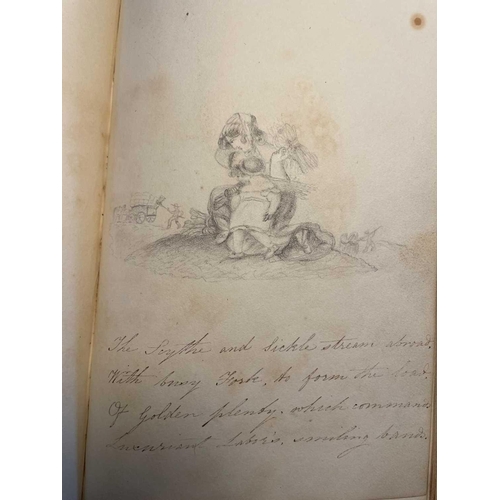 The Scythe and Sickle stream abroad.
With busy Fork, to form the load.
Of Golden plenty, which commands
Luxuriant Labor's smiling bands.